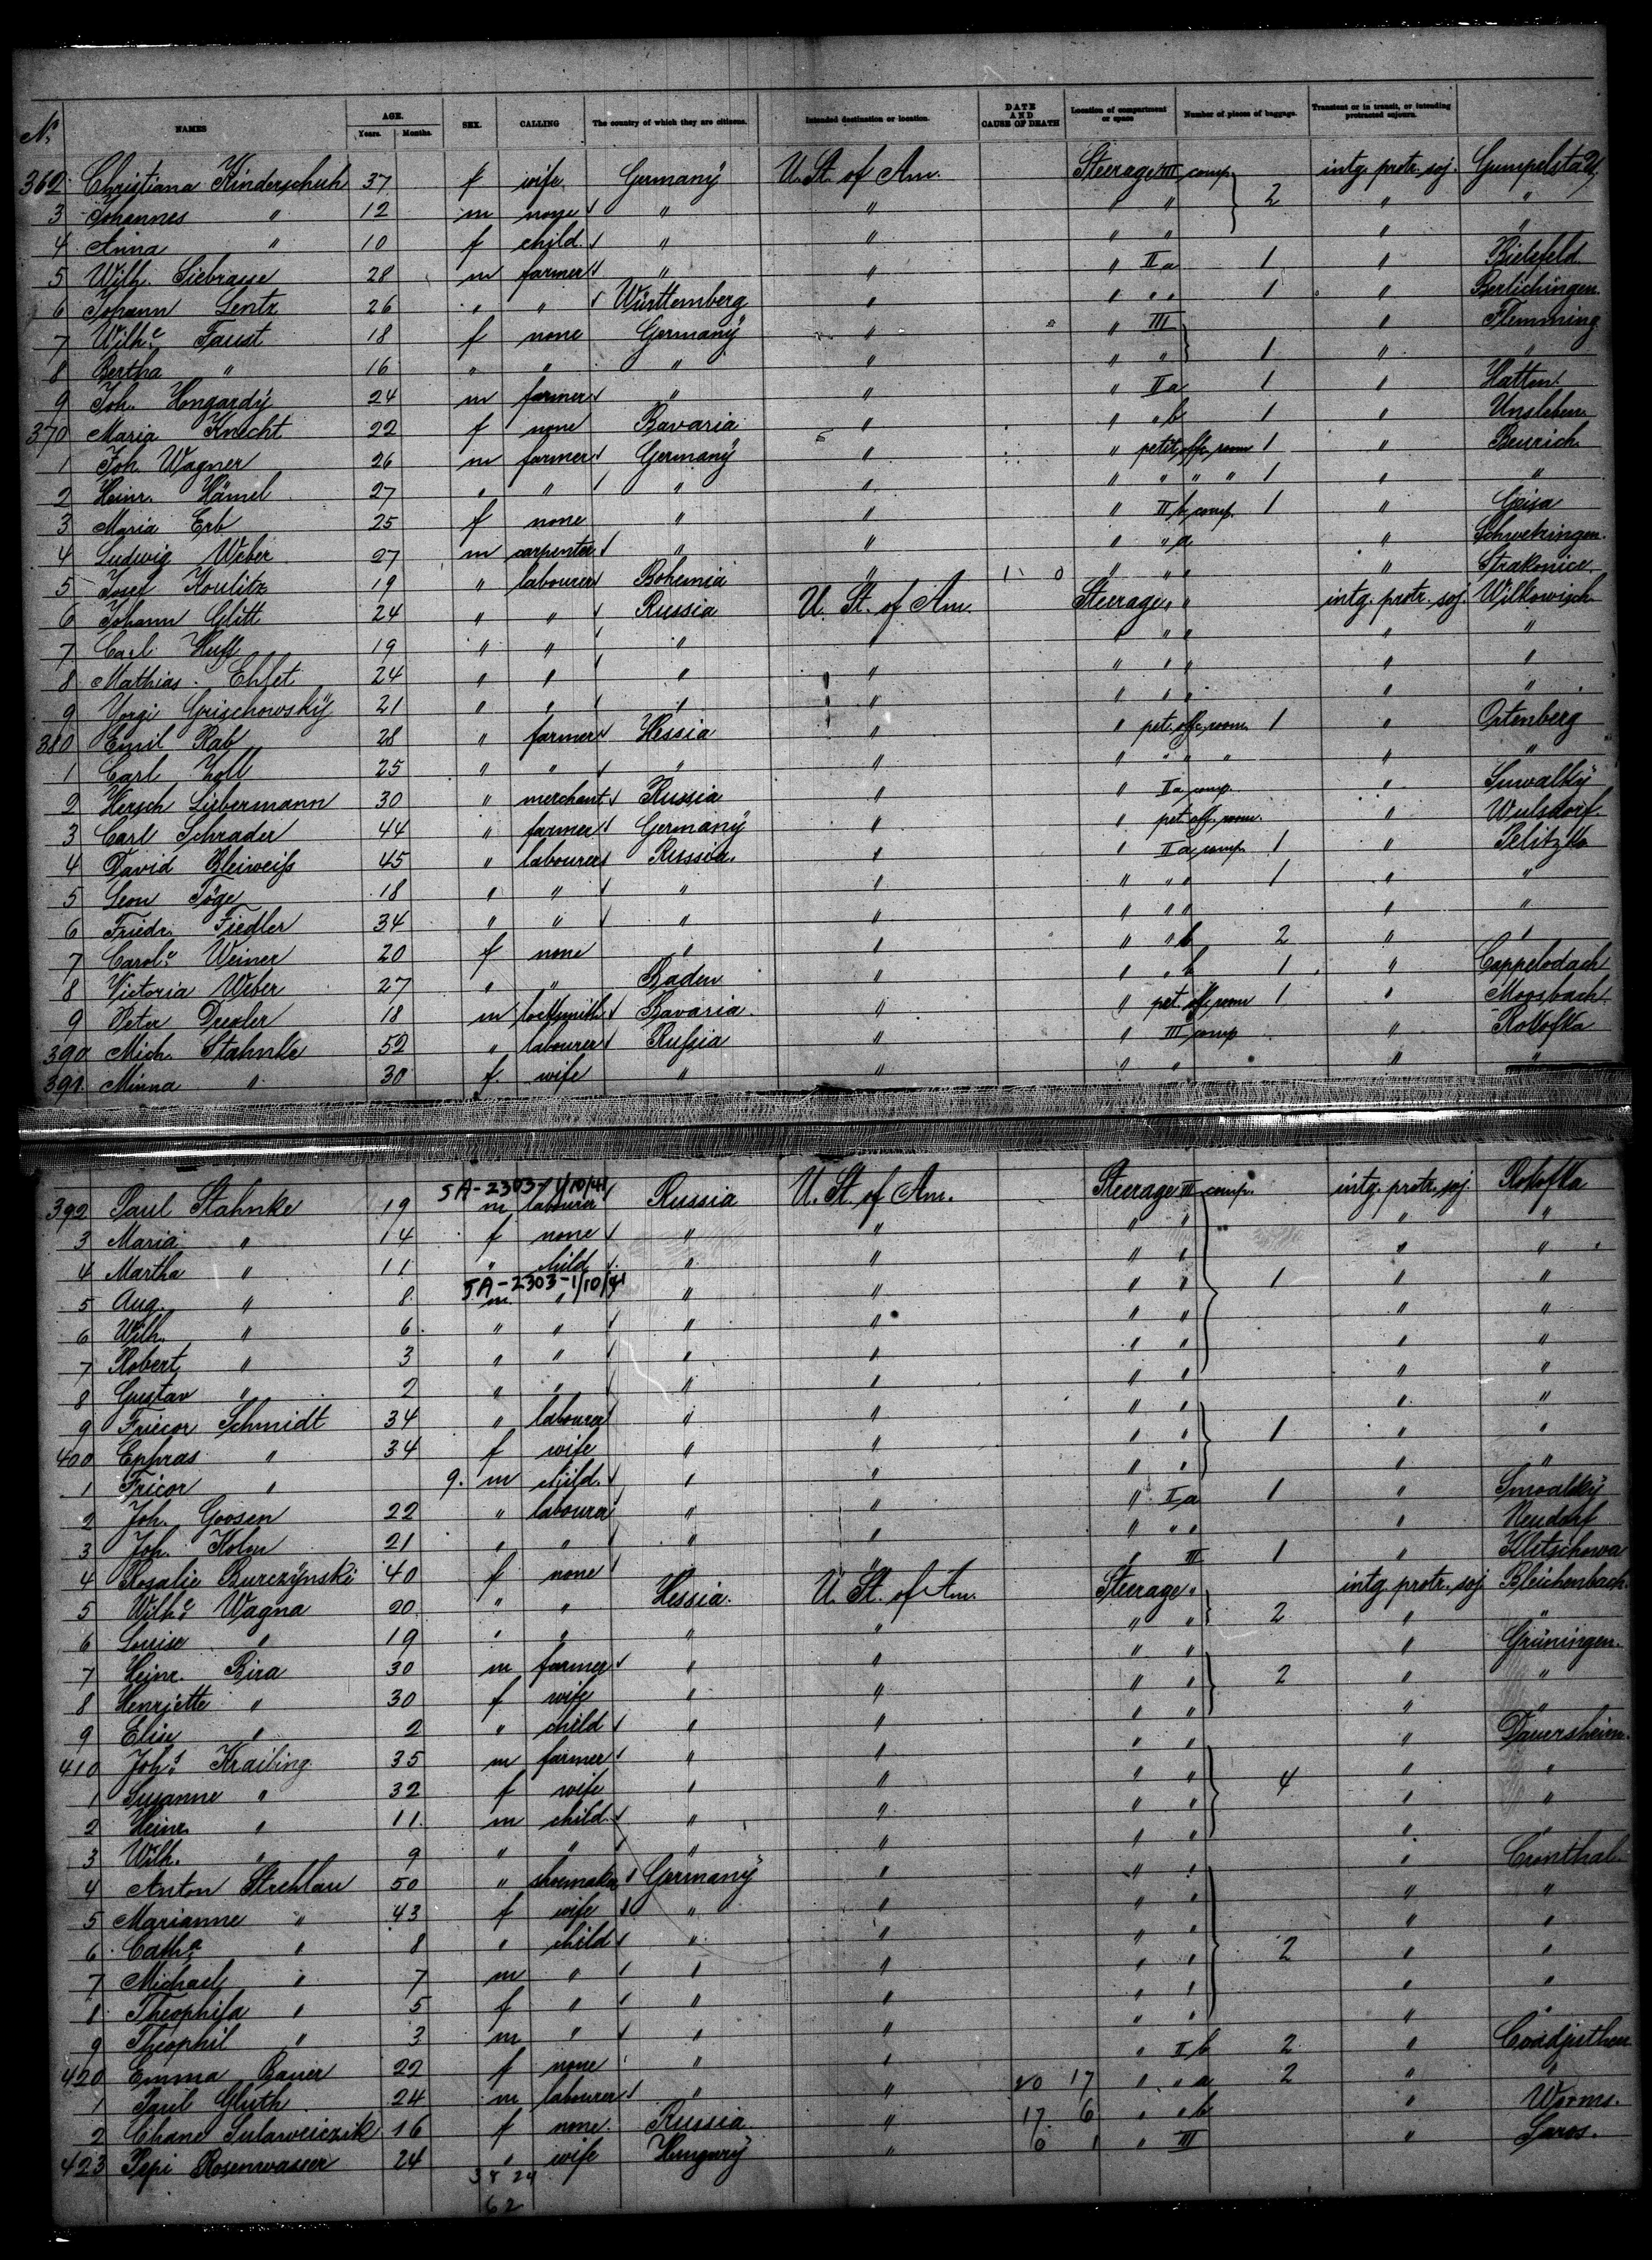 No. NAMES AGE. Years. Months. SEX. CALLING The country of which they are citizens. Intended destination or location. DATE AND CAUSE OF DEATH Location of compartment or space Number of pieces of baggage. Transient or in transit, or intending protracted sojourn.
362 Christiana Kinderschuh 37 f wife Germany U. St. of Am. Steerage III comp. 2 intg. protr. soj.
3 Johannes " 12 m none " " " " " "
4 Anna " 10 f child " " " " " "
5 Wilh. Siebrasse 28 m farmer " " " II a 1 " Bielefeld
6 Johann Lentz 26 " " Württemberg " " " " 1 " Berlichingen
7 Wilhe. Faust 18 f none Germany " " III " Flemming
8 Bertha " 16 " " " " " " 1 " "
9 Joh. Hongardy 24 m farmer " " " II a 1 " Hatten
370 Maria Knecht 22 f none Bavaria " " " b 1 " Unsleben
1 Joh. Wagner 26 m farmer Germany " " petit. off. room 1 " Beurich
2 Heinr. Hämel 27 " " " " " " " " 1 " "
3 Maria Erb 25 f none " " " II b comp. 1 " Geisa
4 Ludwig Weber 27 m carpenter " " " " a " Schwetzingen
5 Josef Koulitz 19 " labourer Bohemia " " " " " Strakonice
6 Johann Glitt 24 " " Russia U. St. of Am. Steerage " " intg. protr. soj. Wilkowisch
7 Carl Huff 19 " " " " " " " " "
8 Mathias Ehlet 24 " " " " " " " " "
9 Yorgi Grischowsky 21 " " " " " " " " "
380 Emil Rab 28 " farmer Hessia " " pet. off. room 1 " Ortenberg
1 Carl Zoll 25 " " " " " " " " " "
2 Hersch Liebermann 30 " merchant Russia " " II a comp. " Suwalky
3 Carl Schrader 44 " farmer Germany " " pet. off. room. " Wulsdorf
4 David Bleiweiß 45 " labourer Russia " " II a comp. 1 " Pelitzka
5 Leon Töge 18 " " " " " " " 1 " "
6 Friedr. Fiedler 34 " " " " " " " " "
7 Carole. Weiner 20 f none " " " " b 2 " "
8 Victoria Weber 27 " " Baden " " " b 1 " Cappelrodach
9 Peter Drexler 18 m locksmith Bavaria " " pet. off. room 1 " Moosbach
390 Mich. Stahnke 52 " labourer Rußia " " III comp " Rokofka
391 Minna " 30 f. wife " " " " " "
5A-2303-1/10/41
392 Paul Stahnke 19 m labourer Russia U. St. of Am. Steerage III comp. intg. protr. soj. Rokofka
3 Maria " 14 f none " " " " " "
4 Martha " 11 " child " " " " " "
5A-2303-1/10/41
5 Aug. " 8 m " " " " " 1 " "
6 Wilh. " 6 " " " " " " " "
7 Robert " 3 " " " " " " " "
8 Gustav " 2 " " " " " " " "
9 Fricor Schmidt 34 " labourer " " " " " "
400 Ephras " 34 f wife " " " " 1 " "
1 Fricor " 9. m child " " " " " "
2 Joh. Goosen 22 " labourer " " " II a 1 "
3 Joh. Kolm 21 " " " " " " " " Neudorf
4 Rosalie Burczynski 40 f none " " III 1 " Kletschowa
5 Wilhe. Wagna 20 " " Hessia U. St. of Am. Steerage " intg. protr. soj Bleichenbach
6 Louise " 19 " " " " " " 2 " "
7 Heinr. Bira 30 m farmer " " " " " Grüningen
8 Henriette " 30 f wife " " " " 2 " "
9 Elise " 2 " child " " " " " "
410 Johs. Krailing 35 m farmer " " " " " Dauersheim
1 Susanne " 32 f wife " " " " 4 " "
2 Heinr. " 11 m child " " " " " "
3 Wilh. " 9 " " " " " " " "
4 Anton Strehlau 50 " shoemaker Germany " " " " Cronthal
5 Marianne " 43 f wife " " " " " "
6 Catha. " 8 " child " " " " " "
7 Michael " 7 m " " " " " 2 " "
8 Theophila " 5 f " " " " " " "
9 Theophil " 3 m " " " " " " "
420 Emma Bauer 22 f none " " " II b 2 " Coadjuthen
1 Paul Gluth 24 m labourer " " 20 17 " " a 2 " "
2 Chane 16 f none Russia " 17 6 " " b " Worms.
423 Pepi Rosenwasser 24 " wife Hungary " 0 1 " III " Saros.
38 24
62